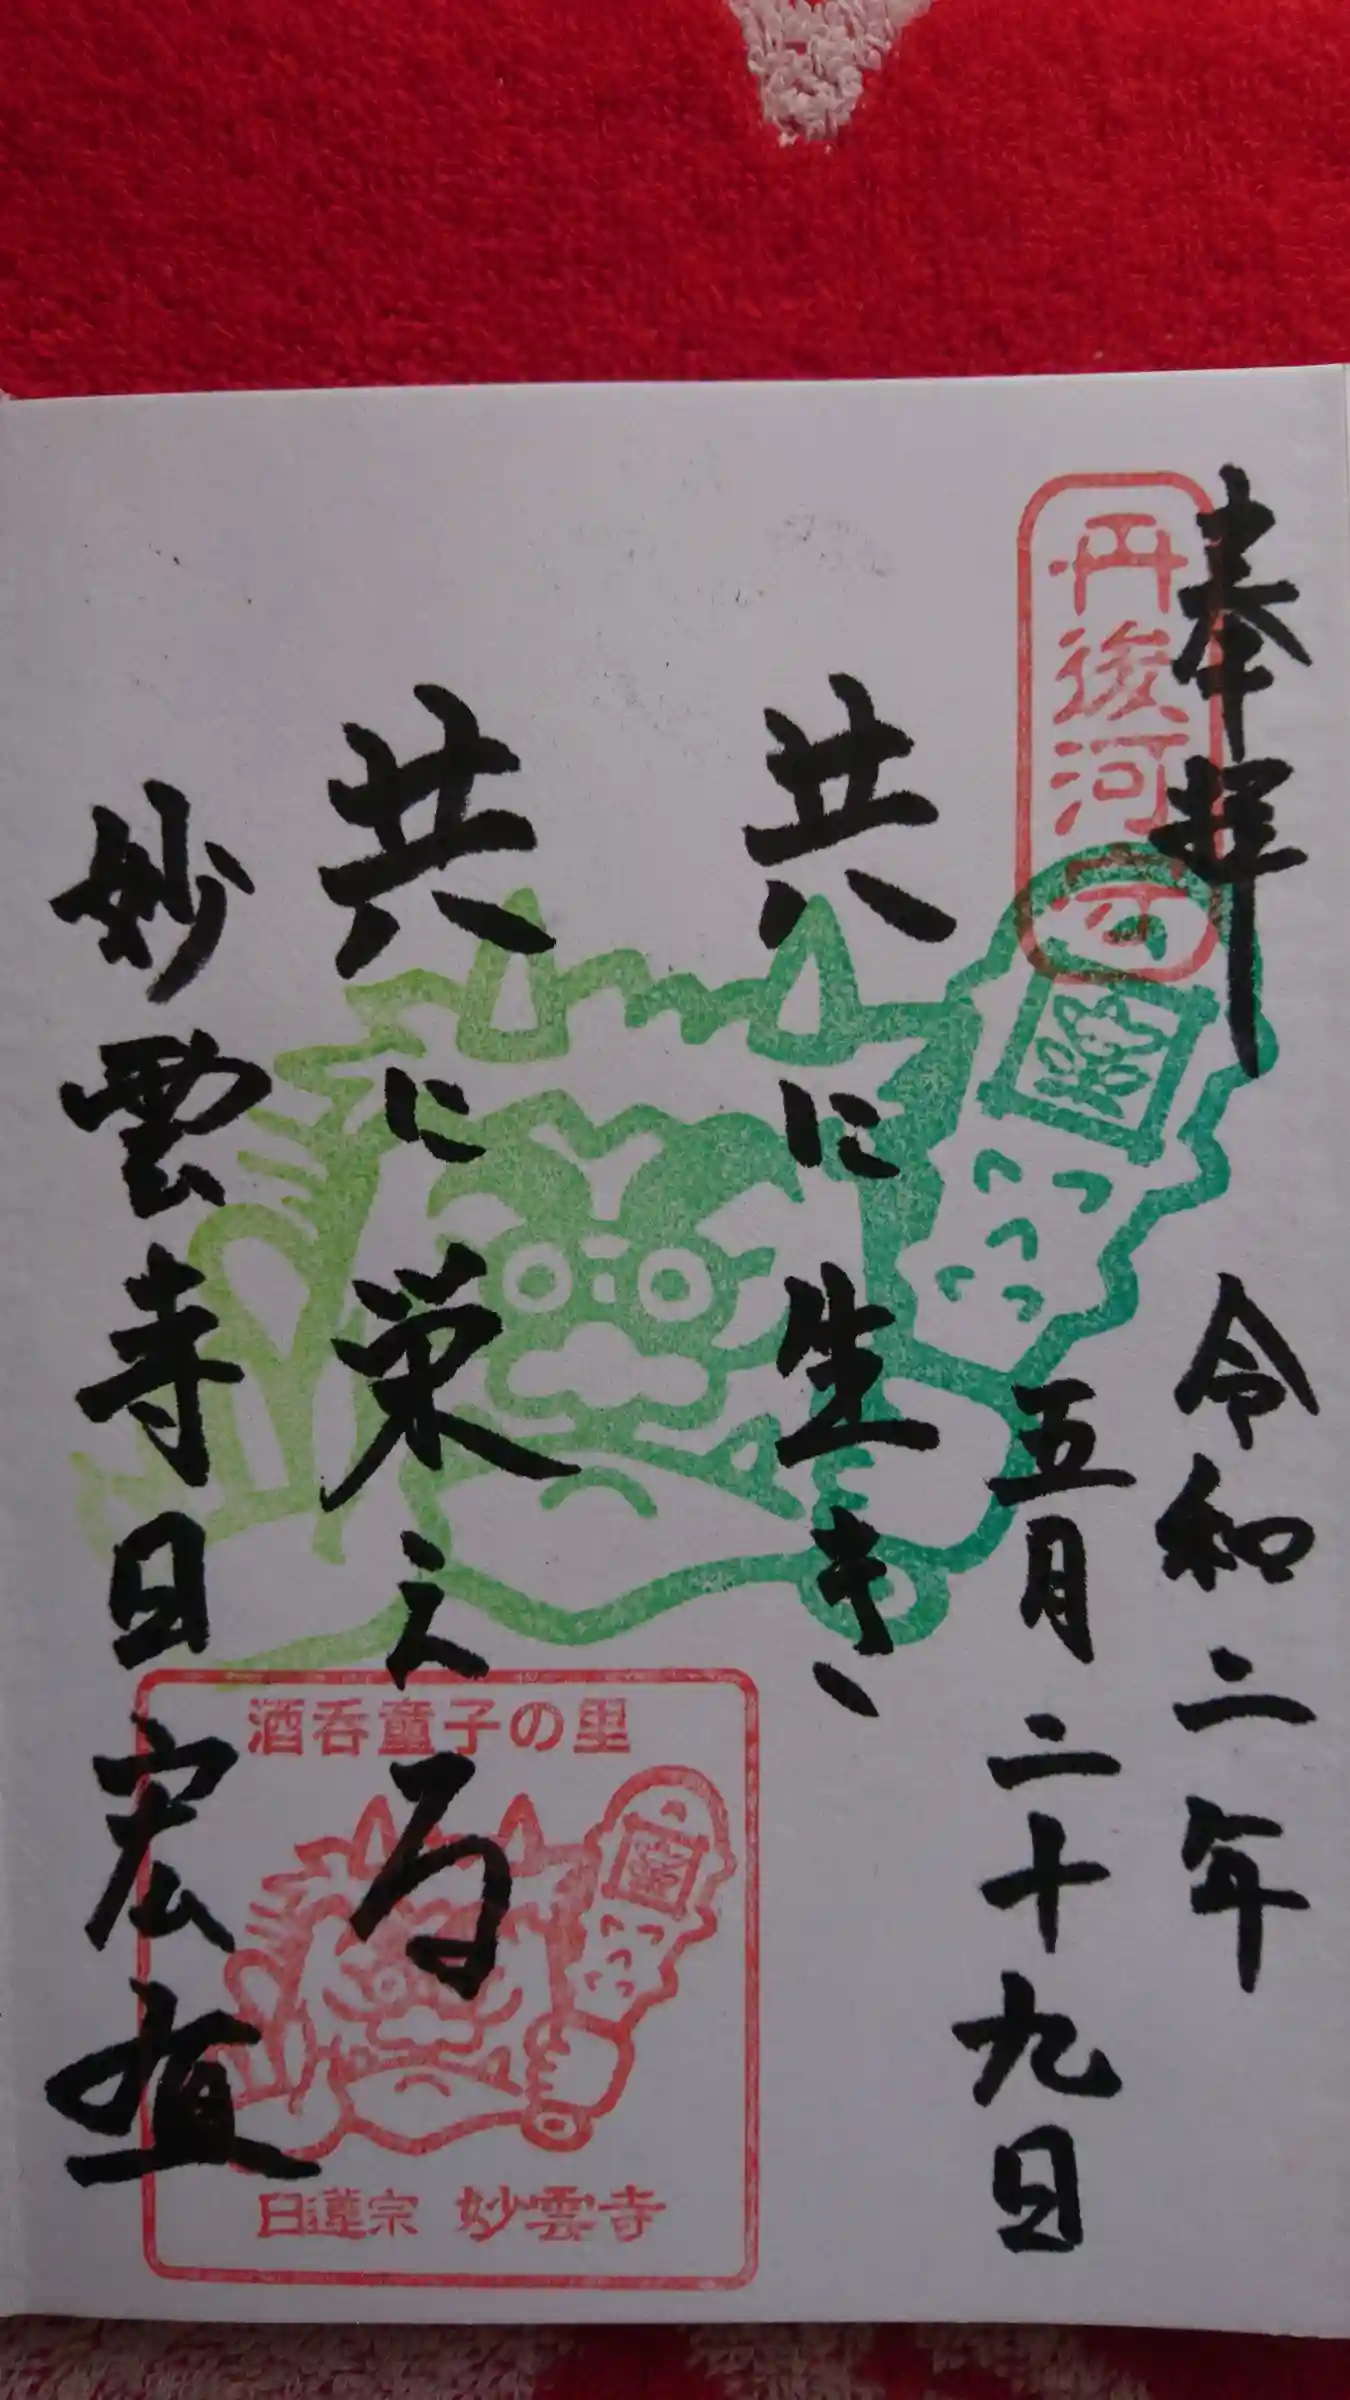 奉拝
令和二年
五月二十九日
丹後河守
共に生き、
共に栄える
妙雲寺日宏
酒呑童子の里
日蓮宗 妙雲寺